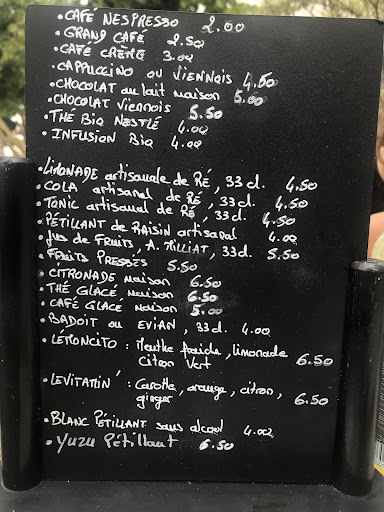 • CAFÉ NESPRESSO 2.00
• GRAND CAFÉ 2.50
• CAFÉ CRÈME 3.00
• CAPPUCCINO ou VIENNOIS 4.50
• CHOCOLAT au lait maison 5.00
• CHOCOLAT Viennois 5.50
• THÉ BIO NESTLÉ 4.00
• INFUSION BIO 4.00
• LIMONADE artisanale de RÉ, 33 cl. 4.50
• COLA artisanal de RÉ, 33 cl. 4.50
• TONIC artisanal de RÉ, 33 cl. 4.50
• PÉTILLANT de RAISIN artisanal 4.00
• Jus de FRUITS, A. MILLIAT, 33 cl. 5.50
• FRUITS PRESSÉS 5.50
• CITRONADE maison 6.50
• THÉ GLACÉ maison 6.50
• CAFÉ GLACÉ maison 5.00
• BADOIT ou EVIAN, 33 cl. 4.00
• LÉMONCITO : Menthe fraîche, limonade
Citron Vert 6.50
• LEVITAMIN' : Carotte, orange, citron,
ginger 6.50
• BLANC PÉTILLANT sans alcool 4.00
• YUZU PÉTILLANT 6.50